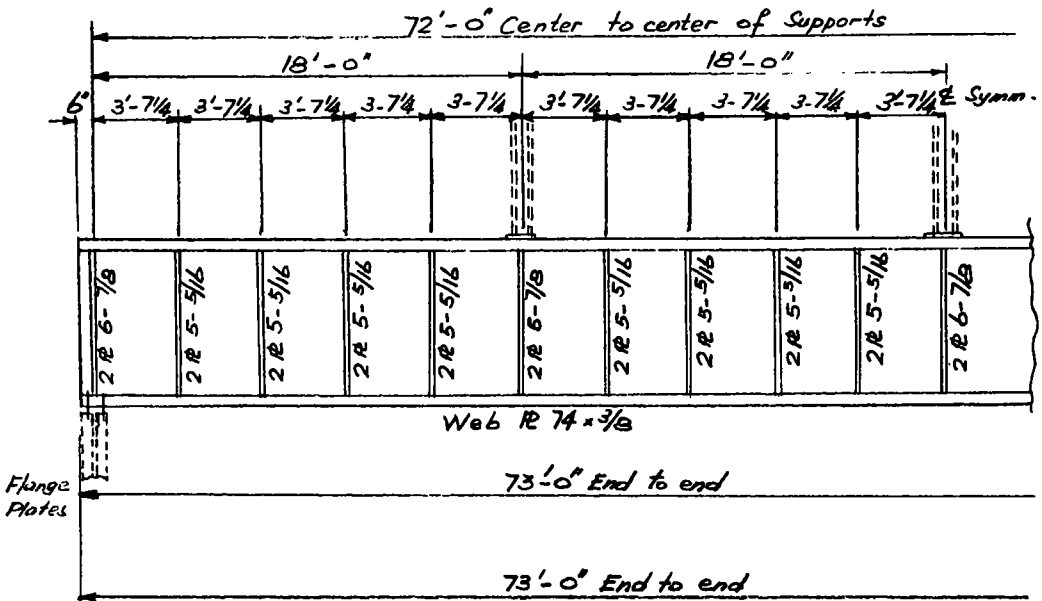 72'-0" Center to center of Supports
18'-0" 18'-0"
6" 3'-7¼ 3'-7¼ 3'-7¼ 3-7¼ 3-7¼ 3'-7¼ 3-7¼ 3-7¼ 3-7¼ 3'-7¼ ℄ Symm.
2 PL 6-7/8
2 PL 5-5/16
2 PL 5-5/16
2 PL 5-5/16
2 PL 5-5/16
2 PL 6-7/8
2 PL 5-5/16
2 PL 5-5/16
2 PL 5-5/16
2 PL 5-5/16
2 PL 6-7/8
Web PL 74 x 3/8
Flange
Plates
73'-0" End to end
73'-0" End to end